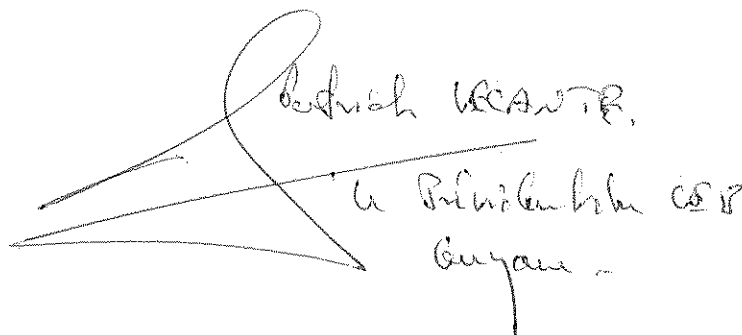 Patrick LECANTE.
Le Président du CEB
Guyane -